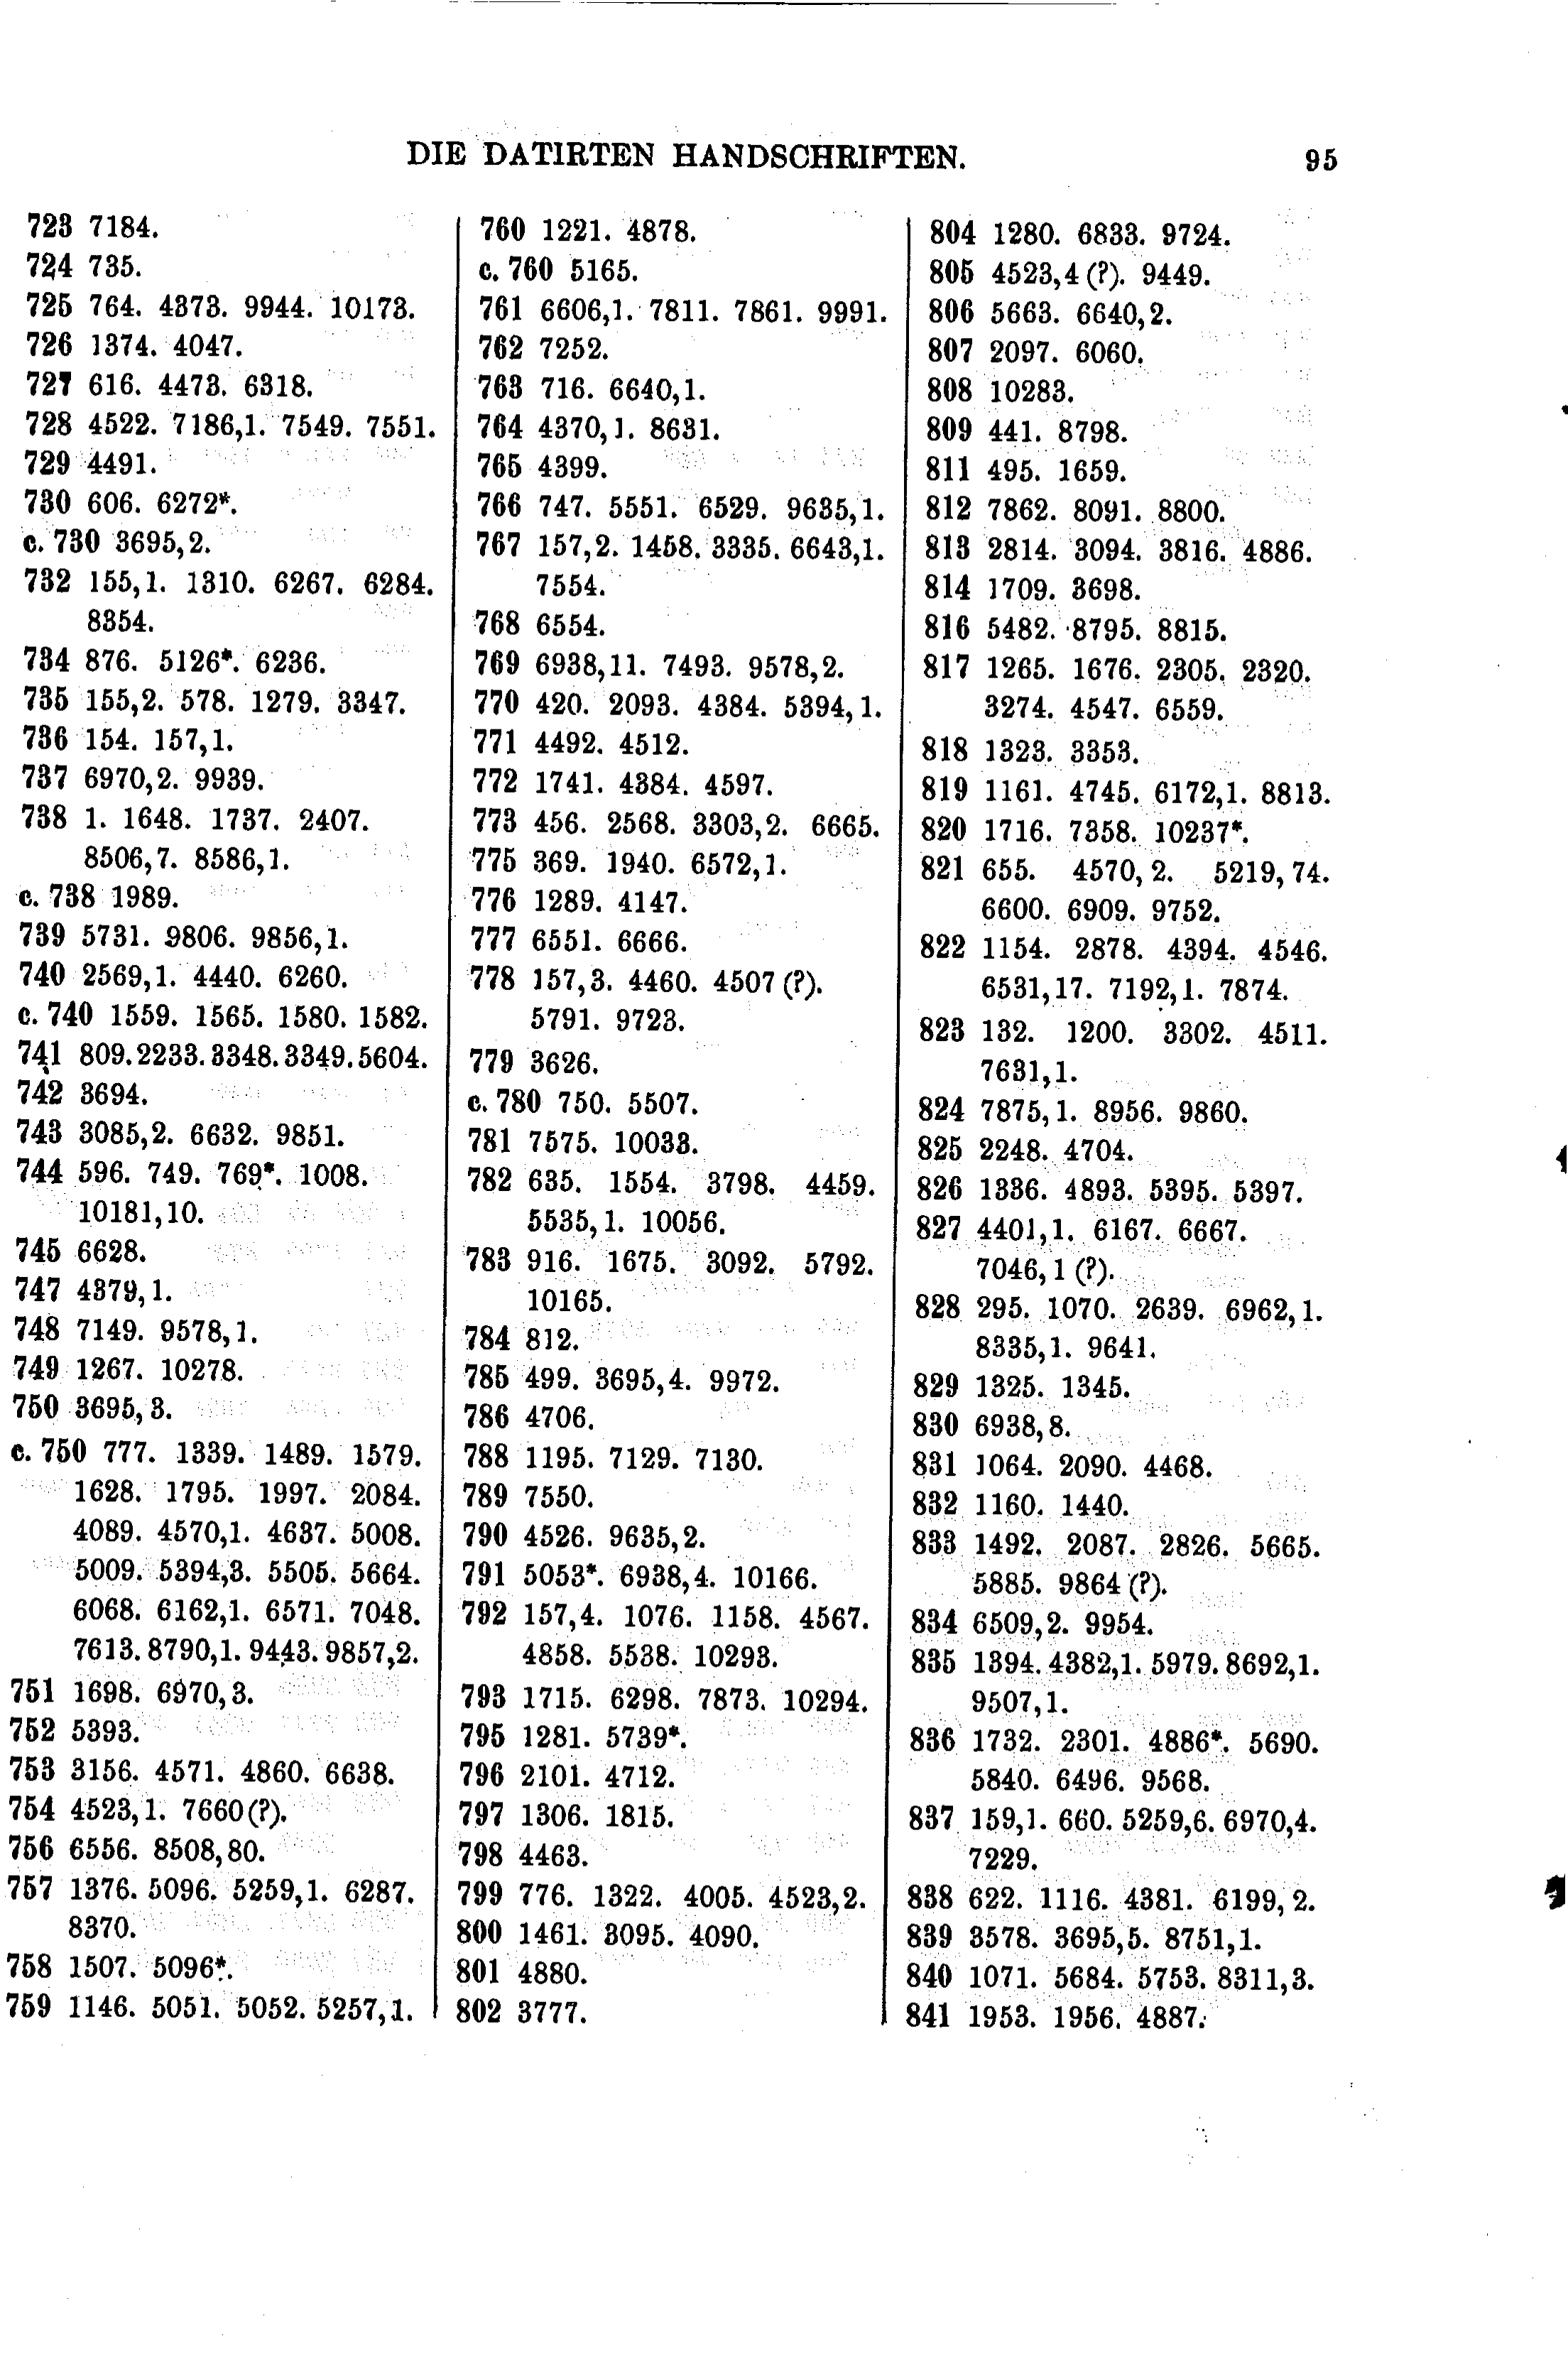 DIE DATIRTEN HANDSCHRIFTEN. 95
723 7184.
724 735.
725 764. 4373. 9944. 10173.
726 1374. 4047.
727 616. 4473. 6318.
728 4522. 7186,1. 7549. 7551.
729 4491.
730 606. 6272*.
c. 730 3695,2.
732 155,1. 1310. 6267. 6284.
8354.
734 876. 5126*. 6236.
735 155,2. 578. 1279. 3347.
736 154. 157,1.
737 6970,2. 9939.
738 1. 1648. 1737. 2407.
8506,7. 8586,1.
c. 738 1989.
739 5731. 9806. 9856,1.
740 2569,1. 4440. 6260.
c. 740 1559. 1565. 1580. 1582.
741 809. 2233. 3348. 3349. 5604.
742 3694.
743 3085,2. 6632. 9851.
744 596. 749. 769*. 1008.
10181,10.
745 6628.
747 4379,1.
748 7149. 9578,1.
749 1267. 10278.
750 3695,3.
c. 750 777. 1339. 1489. 1579.
1628. 1795. 1997. 2084.
4089. 4570,1. 4637. 5008.
5009. 5394,3. 5505. 5664.
6068. 6162,1. 6571. 7048.
7613. 8790,1. 9443. 9857,2.
751 1698. 6970,3.
752 5393.
753 3156. 4571. 4860. 6638.
754 4523,1. 7660(?).
756 6556. 8508,80.
757 1376. 5096. 5259,1. 6287.
8370.
758 1507. 5096*.
759 1146. 5051. 5052. 5257,1.
760 1221. 4878.
c. 760 5165.
761 6606,1. 7811. 7861. 9991.
762 7252.
763 716. 6640,1.
764 4370,1. 8631.
765 4399.
766 747. 5551. 6529. 9635,1.
767 157,2. 1458. 3335. 6643,1.
7554.
768 6554.
769 6938,11. 7493. 9578,2.
770 420. 2093. 4384. 5394,1.
771 4492. 4512.
772 1741. 4384. 4597.
773 456. 2568. 3303,2. 6665.
775 369. 1940. 6572,1.
776 1289. 4147.
777 6551. 6666.
778 157,3. 4460. 4507 (?).
5791. 9723.
779 3626.
c. 780 750. 5507.
781 7575. 10033.
782 635. 1554. 3798. 4459.
5535,1. 10056.
783 916. 1675. 3092. 5792.
10165.
784 812.
785 499. 3695,4. 9972.
786 4706.
788 1195. 7129. 7130.
789 7550.
790 4526. 9635,2.
791 5053*. 6938,4. 10166.
792 157,4. 1076. 1158. 4567.
4858. 5538. 10293.
793 1715. 6298. 7873. 10294.
795 1281. 5739*.
796 2101. 4712.
797 1306. 1815.
798 4463.
799 776. 1322. 4005. 4523,2.
800 1461. 3095. 4090.
801 4880.
802 3777.
804 1280. 6833. 9724.
805 4523,4 (?). 9449.
806 5663. 6640,2.
807 2097. 6060.
808 10283.
809 441. 8798.
811 495. 1659.
812 7862. 8091. 8800.
813 2814. 3094. 3816. 4886.
814 1709. 3698.
816 5482. 8795. 8815.
817 1265. 1676. 2305. 2320.
3274. 4547. 6559.
818 1323. 3353.
819 1161. 4745. 6172,1. 8813.
820 1716. 7358. 10237*.
821 655. 4570,2. 5219,74.
6600. 6909. 9752.
822 1154. 2878. 4394. 4546.
6531,17. 7192,1. 7874.
823 132. 1200. 3302. 4511.
7631,1.
824 7875,1. 8956. 9860.
825 2248. 4704.
826 1336. 4893. 5395. 5397.
827 4401,1. 6167. 6667.
7046,1 (?).
828 295. 1070. 2639. 6962,1.
8335,1. 9641.
829 1325. 1345.
830 6938,8.
831 1064. 2090. 4468.
832 1160. 1440.
833 1492. 2087. 2826. 5665.
5885. 9864 (?).
834 6509,2. 9954.
835 1394. 4382,1. 5979. 8692,1.
9507,1.
836 1732. 2301. 4886*. 5690.
5840. 6496. 9568.
837 159,1. 660. 5259,6. 6970,4.
7229.
838 622. 1116. 4381. 6199,2.
839 3578. 3695,5. 8751,1.
840 1071. 5684. 5753. 8311,3.
841 1953. 1956. 4887.